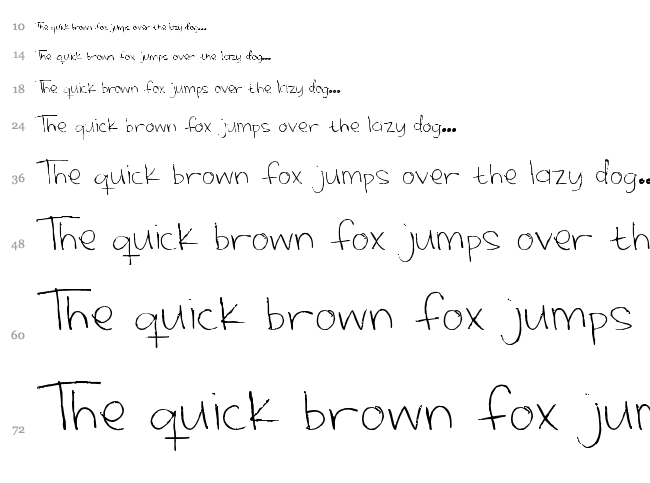 10 The quick brown fox jumps over the lazy dog...
14 The quick brown fox jumps over the lazy dog...
18 The quick brown fox jumps over the lazy dog...
24 The quick brown fox jumps over the lazy dog...
36 The quick brown fox jumps over the lazy dog..
48 The quick brown fox jumps over th
60 The quick brown fox jumps
72 The quick brown fox jur